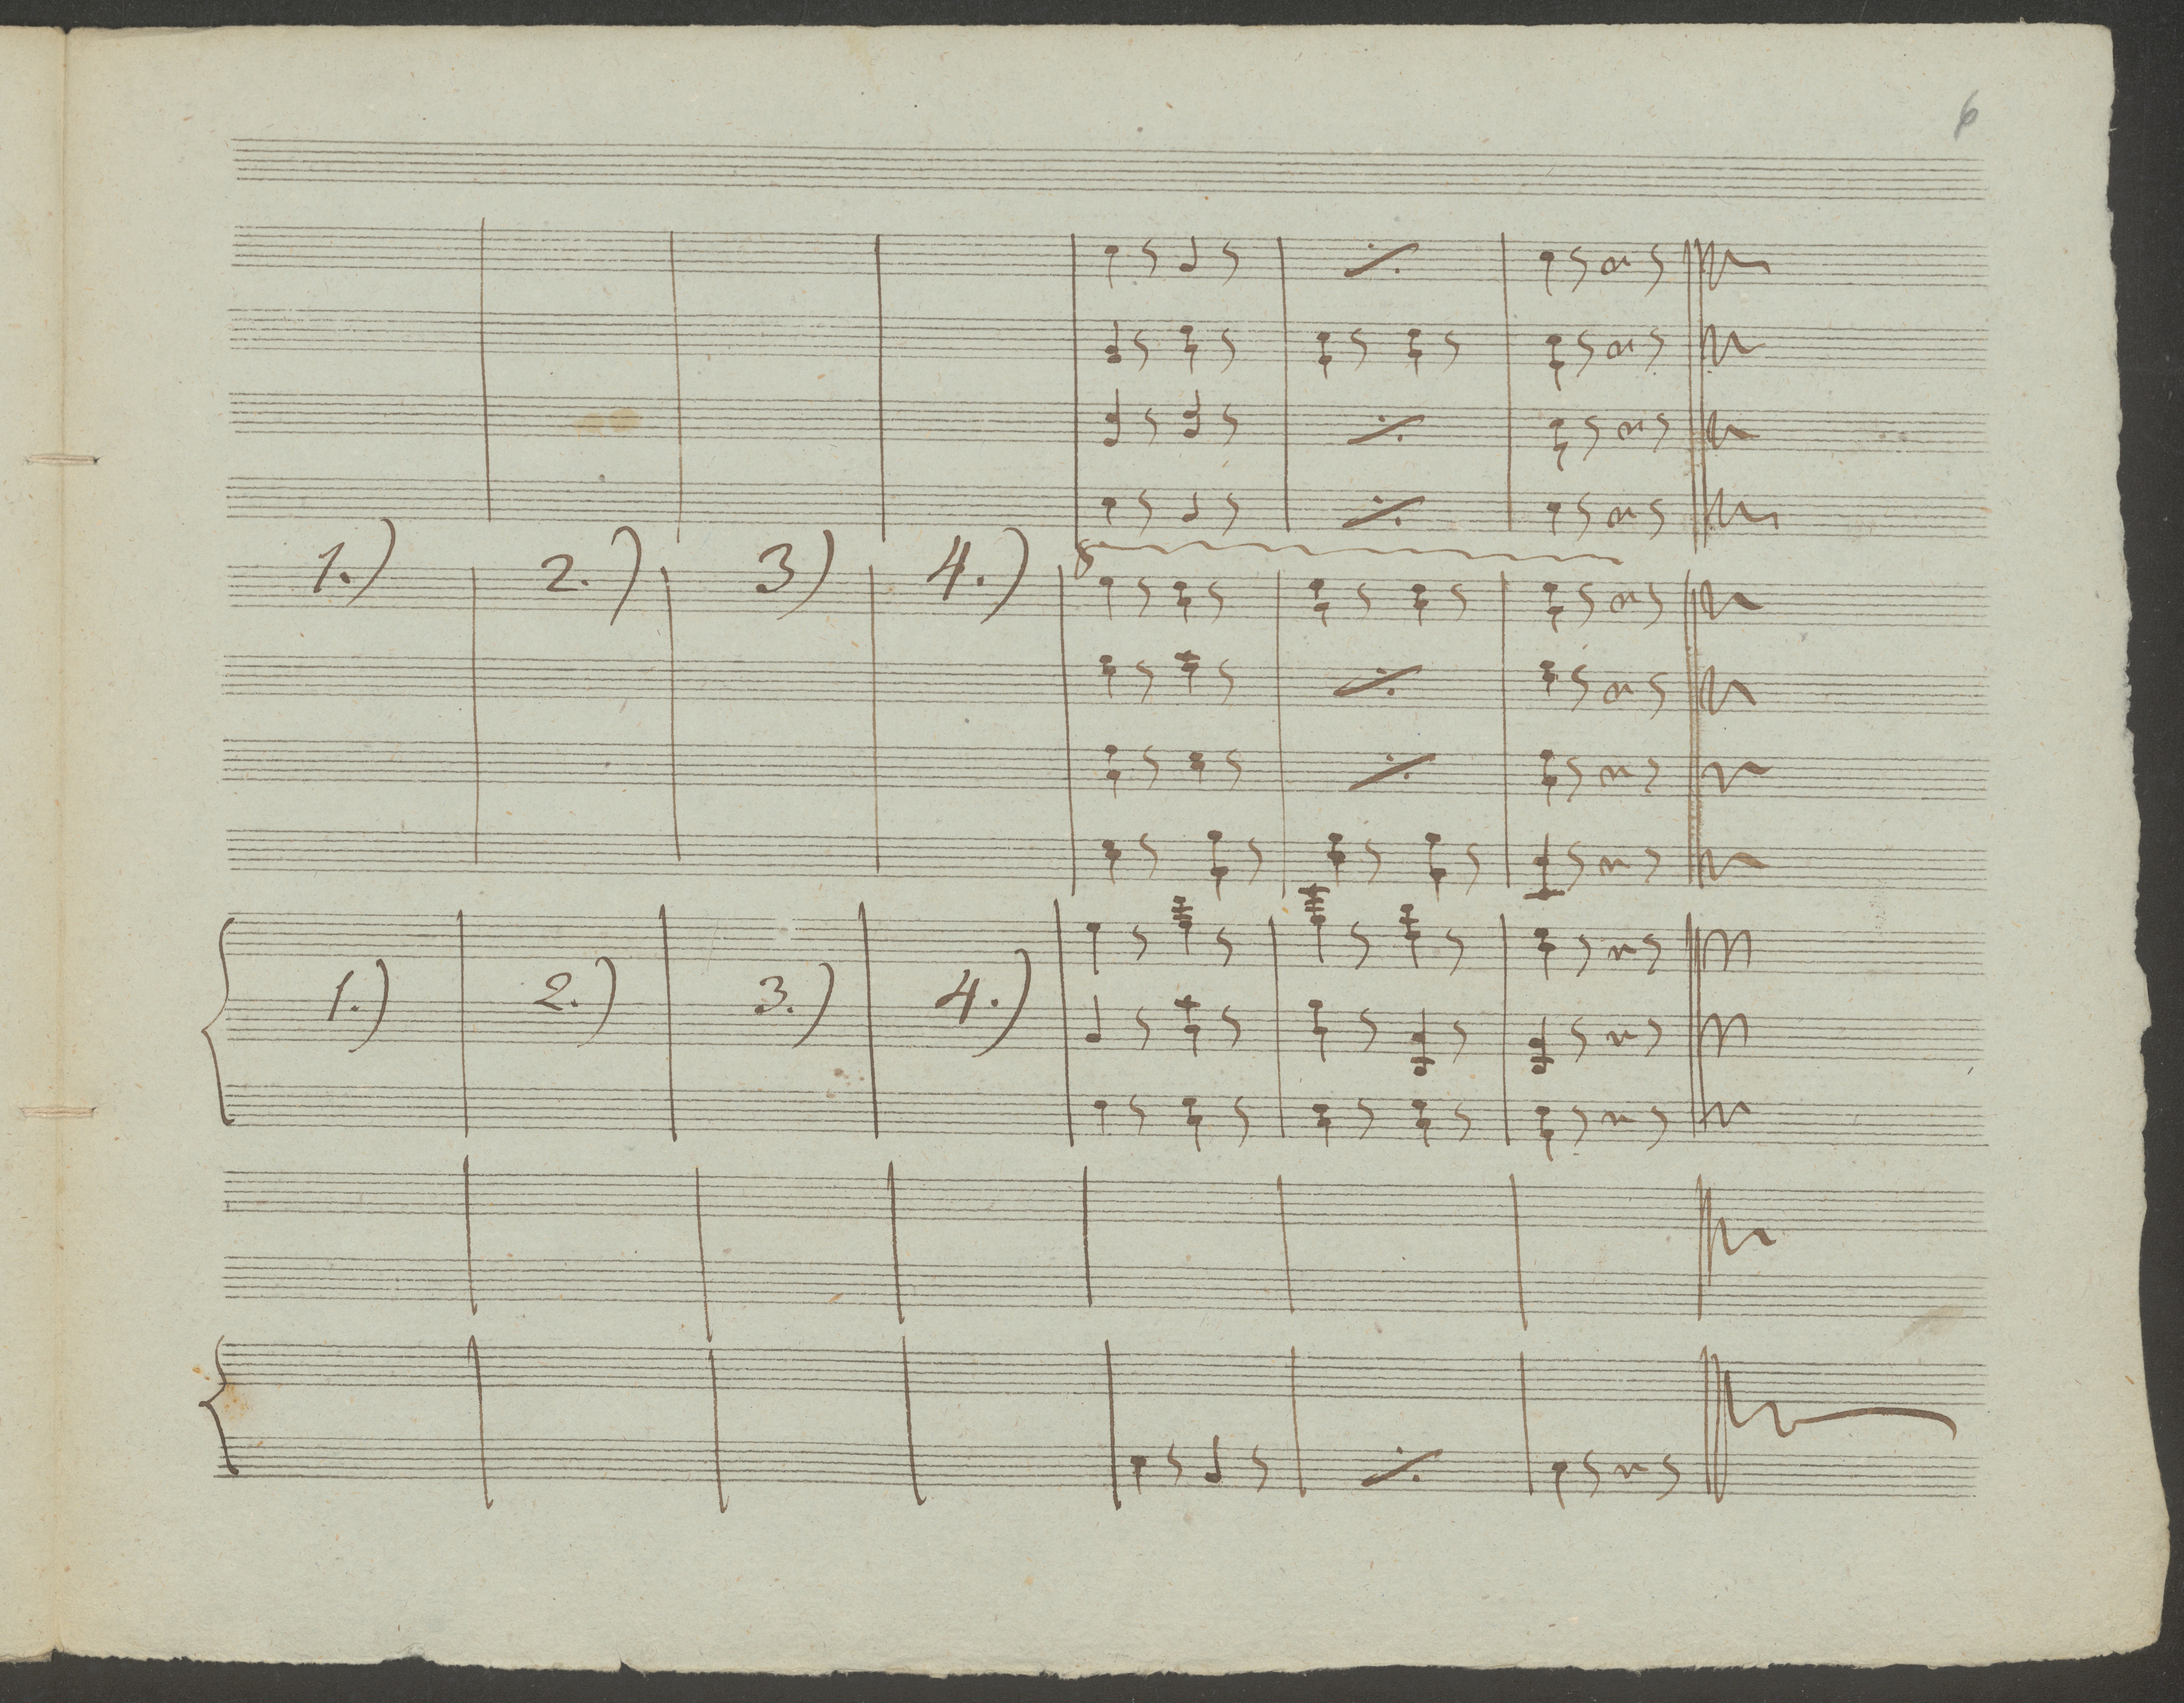 6
1.) 2.) 3) 4.) 8
1.) 2.) 3.) 4.)